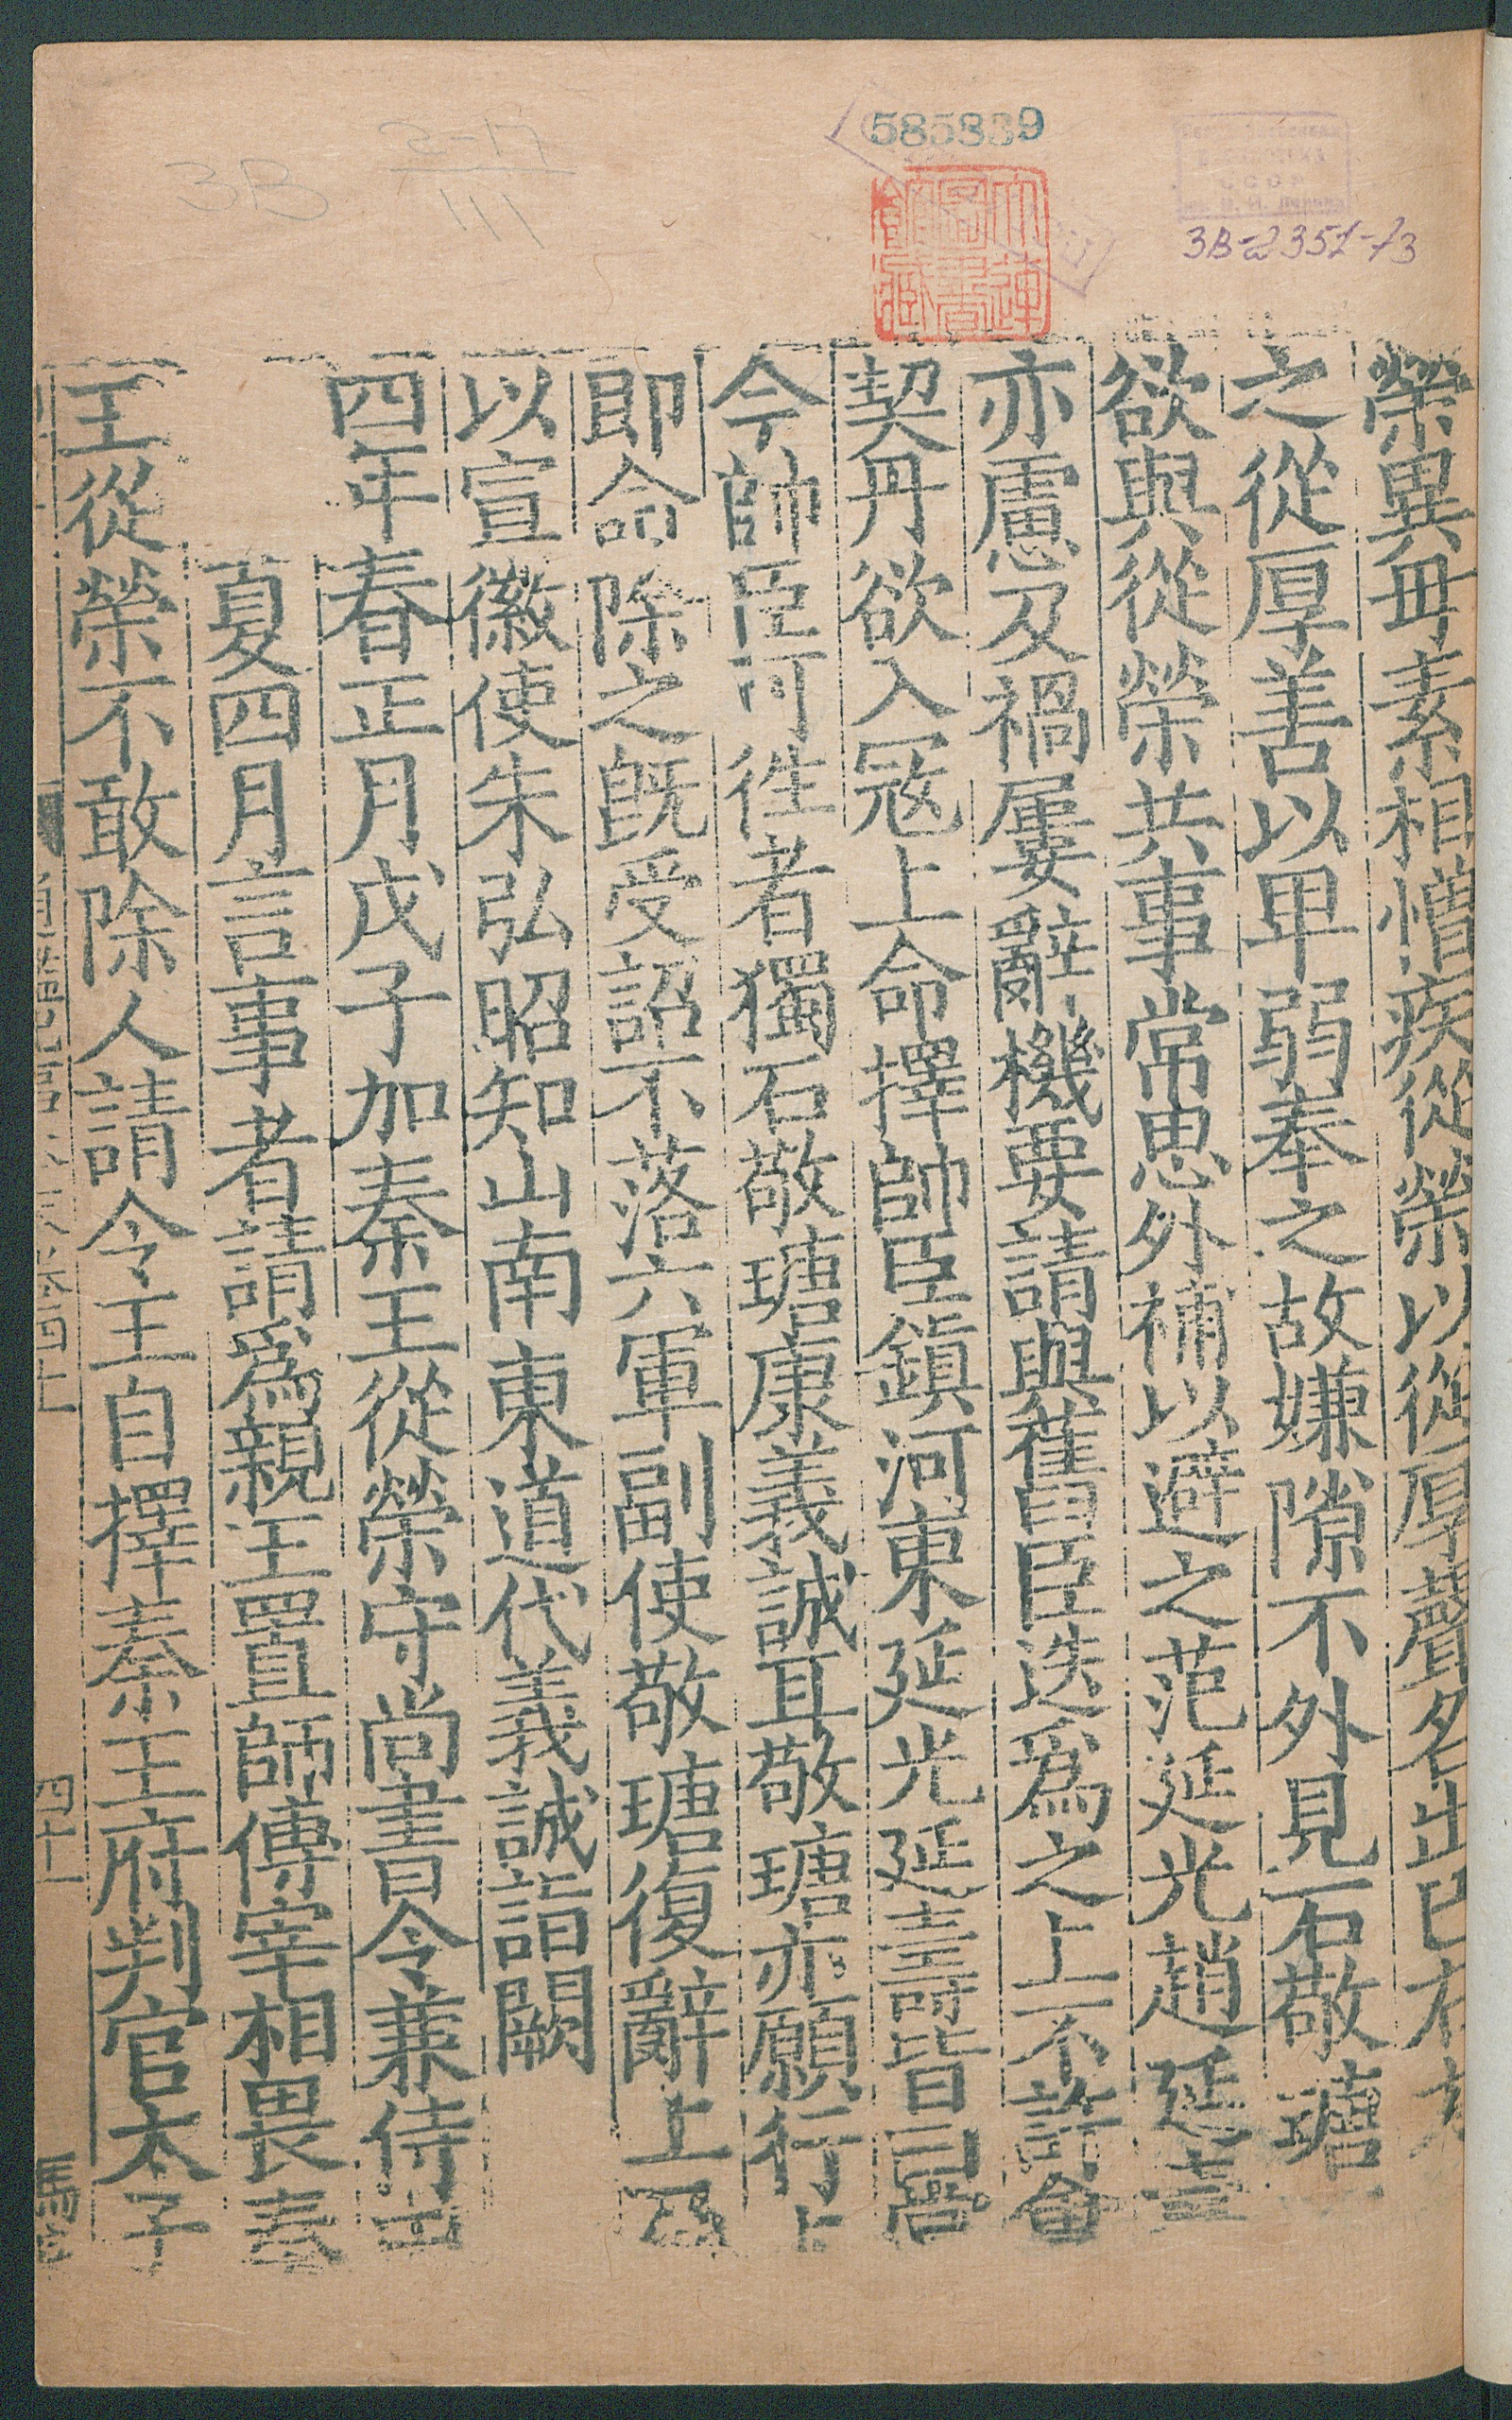 585839
3B
2-17
111
3B-2351-73
榮異母素相憎疾從榮以從厚聲名出已右
之從厚善以卑弱奉之故嫌隙不外見石敬瑭
欲與從榮共事常思外補以避之范延光趙延壽
亦慮及禍屢辭機要請與舊臣迭爲之上不許會
契丹欲入寇上命擇帥臣鎮河東延光延壽皆曰當
今帥臣可徃者獨石敬瑭康義誠耳敬瑭亦願行上
即命除之旣受詔不落六軍副使敬瑭復辭上乃
以宣徽使朱弘昭知山南東道代義誠詣闕
四年春正月戊子加秦王從榮守尚書令兼侍中
夏四月言事者請爲親王置師傅宰相畏秦
王從榮不敢除人請令王自擇秦王府判官太子
四十一